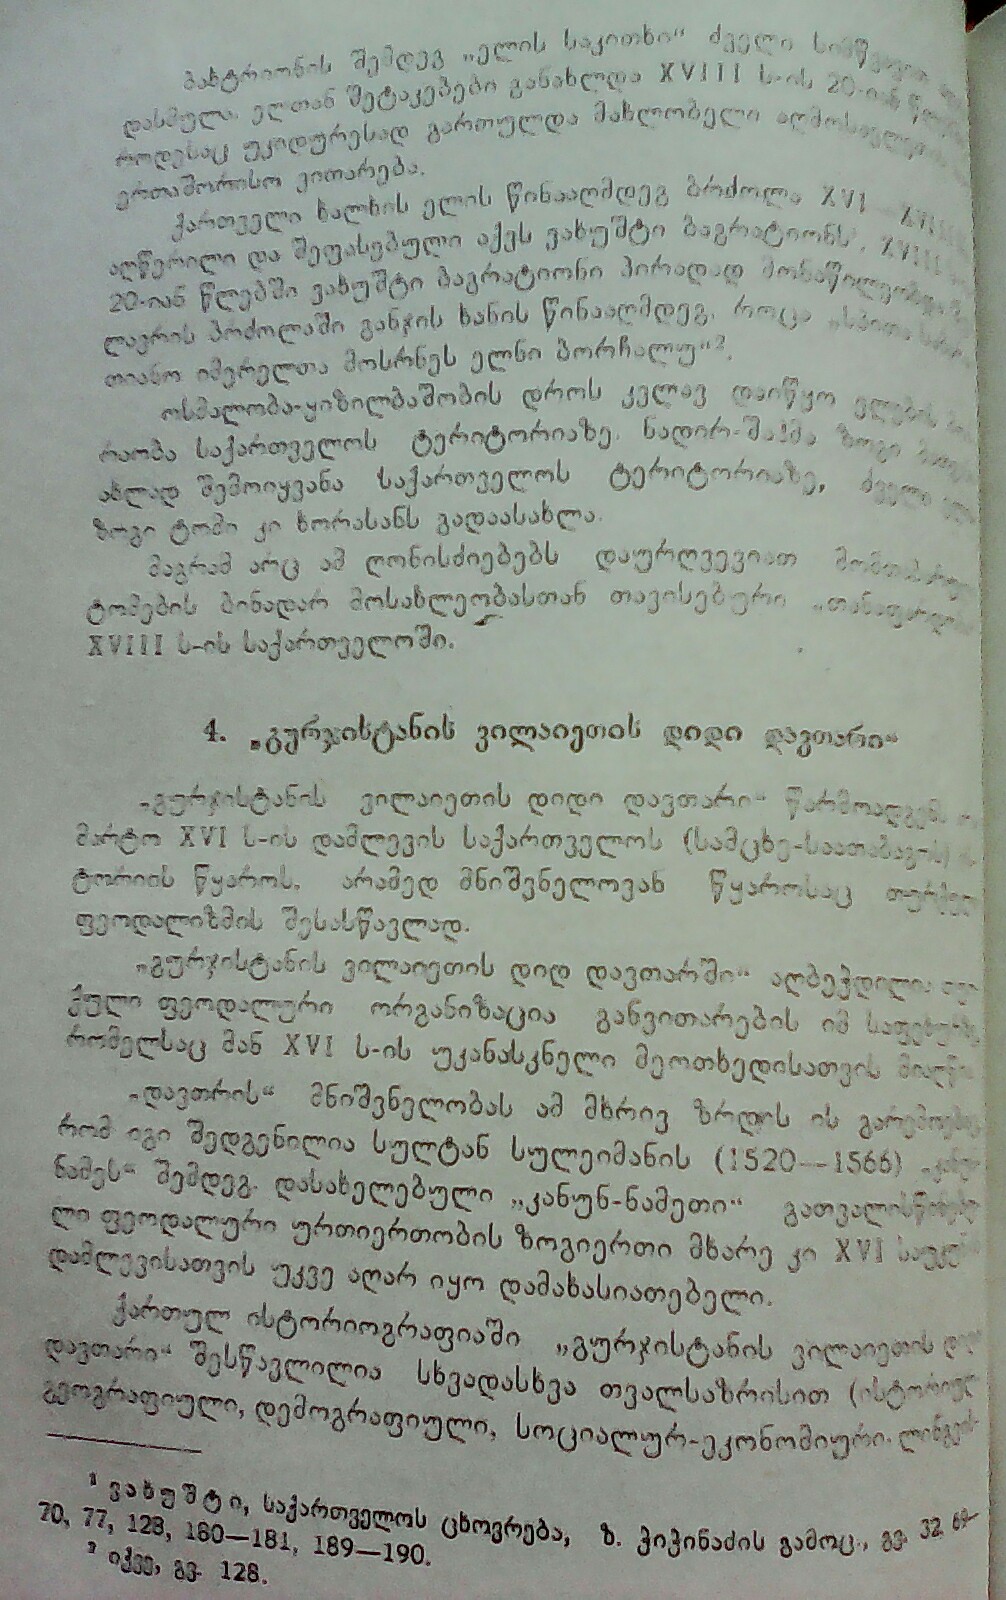 ბახტრიონის შემდეგ „ელის საკითხი“ ძველი სიმწვავით
დასმულა. ელთან შეტაკებები განახლდა XVIII ს-ის 20-იან წლებში,
როდესაც უკიდურესად გართულდა მახლობელი აღმოსავლეთის
ერთაშორისო ვითარება.
ქართველი ხალხის ელის წინააღმდეგ ბრძოლა XVI—XVIII
აღწერილი და შეფასებული აქვს ვახუშტი ბაგრატიონს¹. XVIII
20-იან წლებში ვახუშტი ბაგრატიონი პირადად მონაწილეობდა
ლავრის ბრძოლაში განჯის ხანის წინააღმდეგ, როცა „სპითა
თიანო იმერელთა მოსრნეს ელნი ბორჩალუ“².
ოსმალობა-ყიზილბაშობის დროს კვლავ დაიწყო ელების
რაობა საქართველოს ტერიტორიაზე. ნადირ-შაჰმა ზოგი
ახლად შემოიყვანა საქართველოს ტერიტორიაზე, ძველი
ზოგი ტომი კი ხორასანს გადაასახლა.
მაგრამ არც ამ ღონისძიებებს დაურღვევიათ მომთაბარე
ტომების ბინადარ მოსახლეობასთან თავისებური
XVIII ს-ის საქართველოში.
4. „გურჯისტანის ვილაიეთის დიდი დავთარი“
„გურჯისტანის ვილაიეთის დიდი დავთარი“ წარმოადგენს
მარტო XVI ს-ის დამლევის საქართველოს (სამცხე-საათაბაგოს)
ტორიის წყაროს, არამედ მნიშვნელოვან წყაროსაც
ფეოდალიზმის შესასწავლად.
„გურჯისტანის ვილაიეთის დიდ დავთარში“ აღბეჭდილია
ქული ფეოდალური ორგანიზაცია განვითარების იმ საფეხურზე,
რომელსაც მან XVI ს-ის უკანასკნელი მეოთხედისათვის მიაღწია.
„დავთრის“ მნიშვნელობას ამ მხრივ ზრდის ის გარემოება,
რომ იგი შედგენილია სულტან სულეიმანის (1520—1566) „კანუნ-
ნამეს“ შემდეგ. დასახელებული „კანუნ-ნამეთი“ გათვალისწინებუ-
ლი ფეოდალური ურთიერთობის ზოგიერთი მხარე კი XVI საუკუნის
დამლევისათვის უკვე აღარ იყო დამახასიათებელი.
ქართულ ისტორიოგრაფიაში „გურჯისტანის ვილაიეთის დიდი
დავთარი“ შესწავლილია სხვადასხვა თვალსაზრისით (ისტორიულ-
გეოგრაფიული, დემოგრაფიული, სოციალურ-ეკონომიური, ლინგვის-
¹ ვახუშტი, საქართველოს ცხოვრება, ზ. ჭიჭინაძის გამოც., გვ. 32, 69—
70, 77, 128, 180—181, 189—190.
² იქვე, გვ. 128.